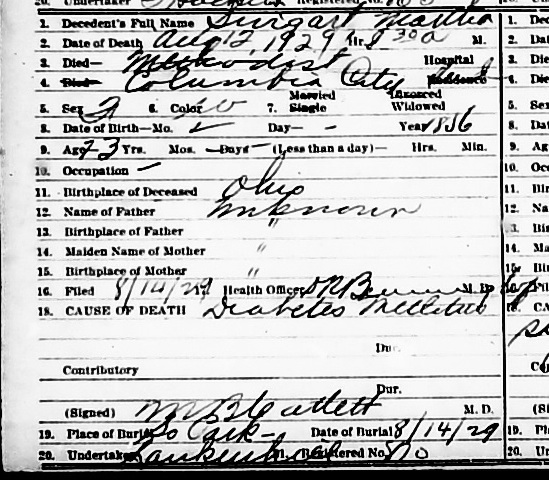 20. Undertaker Registered No.
1. Decedent's Full Name Surgart Martha
2. Date of Death Aug 12, 1929 Hr. 8 30 a M.
3. Died— Methodist Hospital
4. Died— Columbia City Residence
5. Sex F 6. Color W 7. Married Single Divorced Widowed
8. Date of Birth—Mo. — Day— - Year 1856
9. Age 73 Yrs. Mos. — Days — (Less than a day)— Hrs. Min.
10. Occupation —
11. Birthplace of Deceased Ohio
12. Name of Father Unknown
13. Birthplace of Father "
14. Maiden Name of Mother "
15. Birthplace of Mother "
16. Filed 8/14/29 17. Health Officer M. D.
18. CAUSE OF DEATH Diabetes Mellitus
Dur.
Contributory
Dur.
(Signed) M B Catlett M. D.
19. Place of Burial So Park — Date of Burial 8/14/29
20. Undertaker 21. Registered No.
1. Dece
2. Date
3. Died
4. Died
5. Sex
8. Date
9. Ag
10. Occ
11. Birt
12. Na
13. Birt
14. Ma
15. Birt
16. File
18. CA
Co
(Sig
19. Plac
20. Un